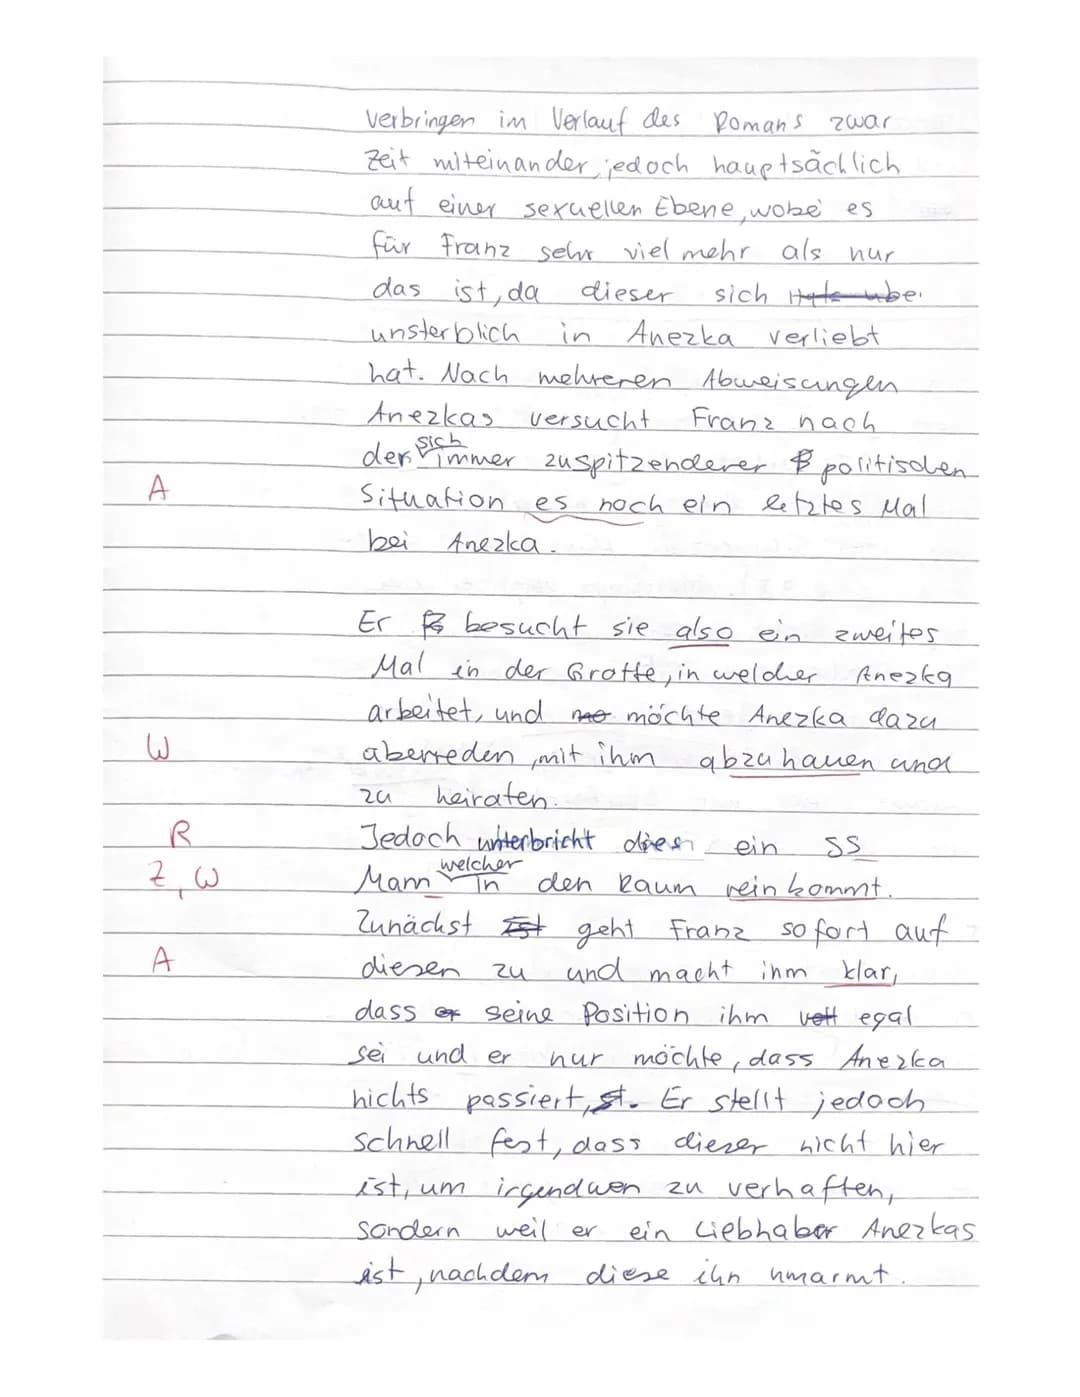 verbringen im Verlauf des Romans zwar
Zeit miteinander, jedoch hauptsächlich
auf einer sexuellen Ebene, wobei es
für Franz sehr viel mehr als nur
das ist, da dieser sich
unsterblich in Anezka verliebt
hat. Nach mehreren Abweisungen
Anezkas versucht Franz nach
der sich immer zuspitzenderer politischen
A Situation es noch ein letztes Mal
bei Anezka.
Er besucht sie also ein zweites
Mal in der Grotte, in welcher Anezka
arbeitet, und möchte Anezka dazu
W überreden, mit ihm abzuhauen und
zu heiraten.
R Jedoch unterbricht diesen ein SS
Z, W Mann welcher in den Raum reinkommt.
Zunächst geht Franz sofort auf
A diesen zu und macht ihm klar,
dass seine Position ihm egal
sei und er nur möchte, dass Anezka
nichts passiert. Er stellt jedoch
schnell fest, dass dieser nicht hier
ist, um irgendwen zu verhaften,
sondern weil er ein Liebhaber Anezkas
ist, nachdem diese ihn umarmt.